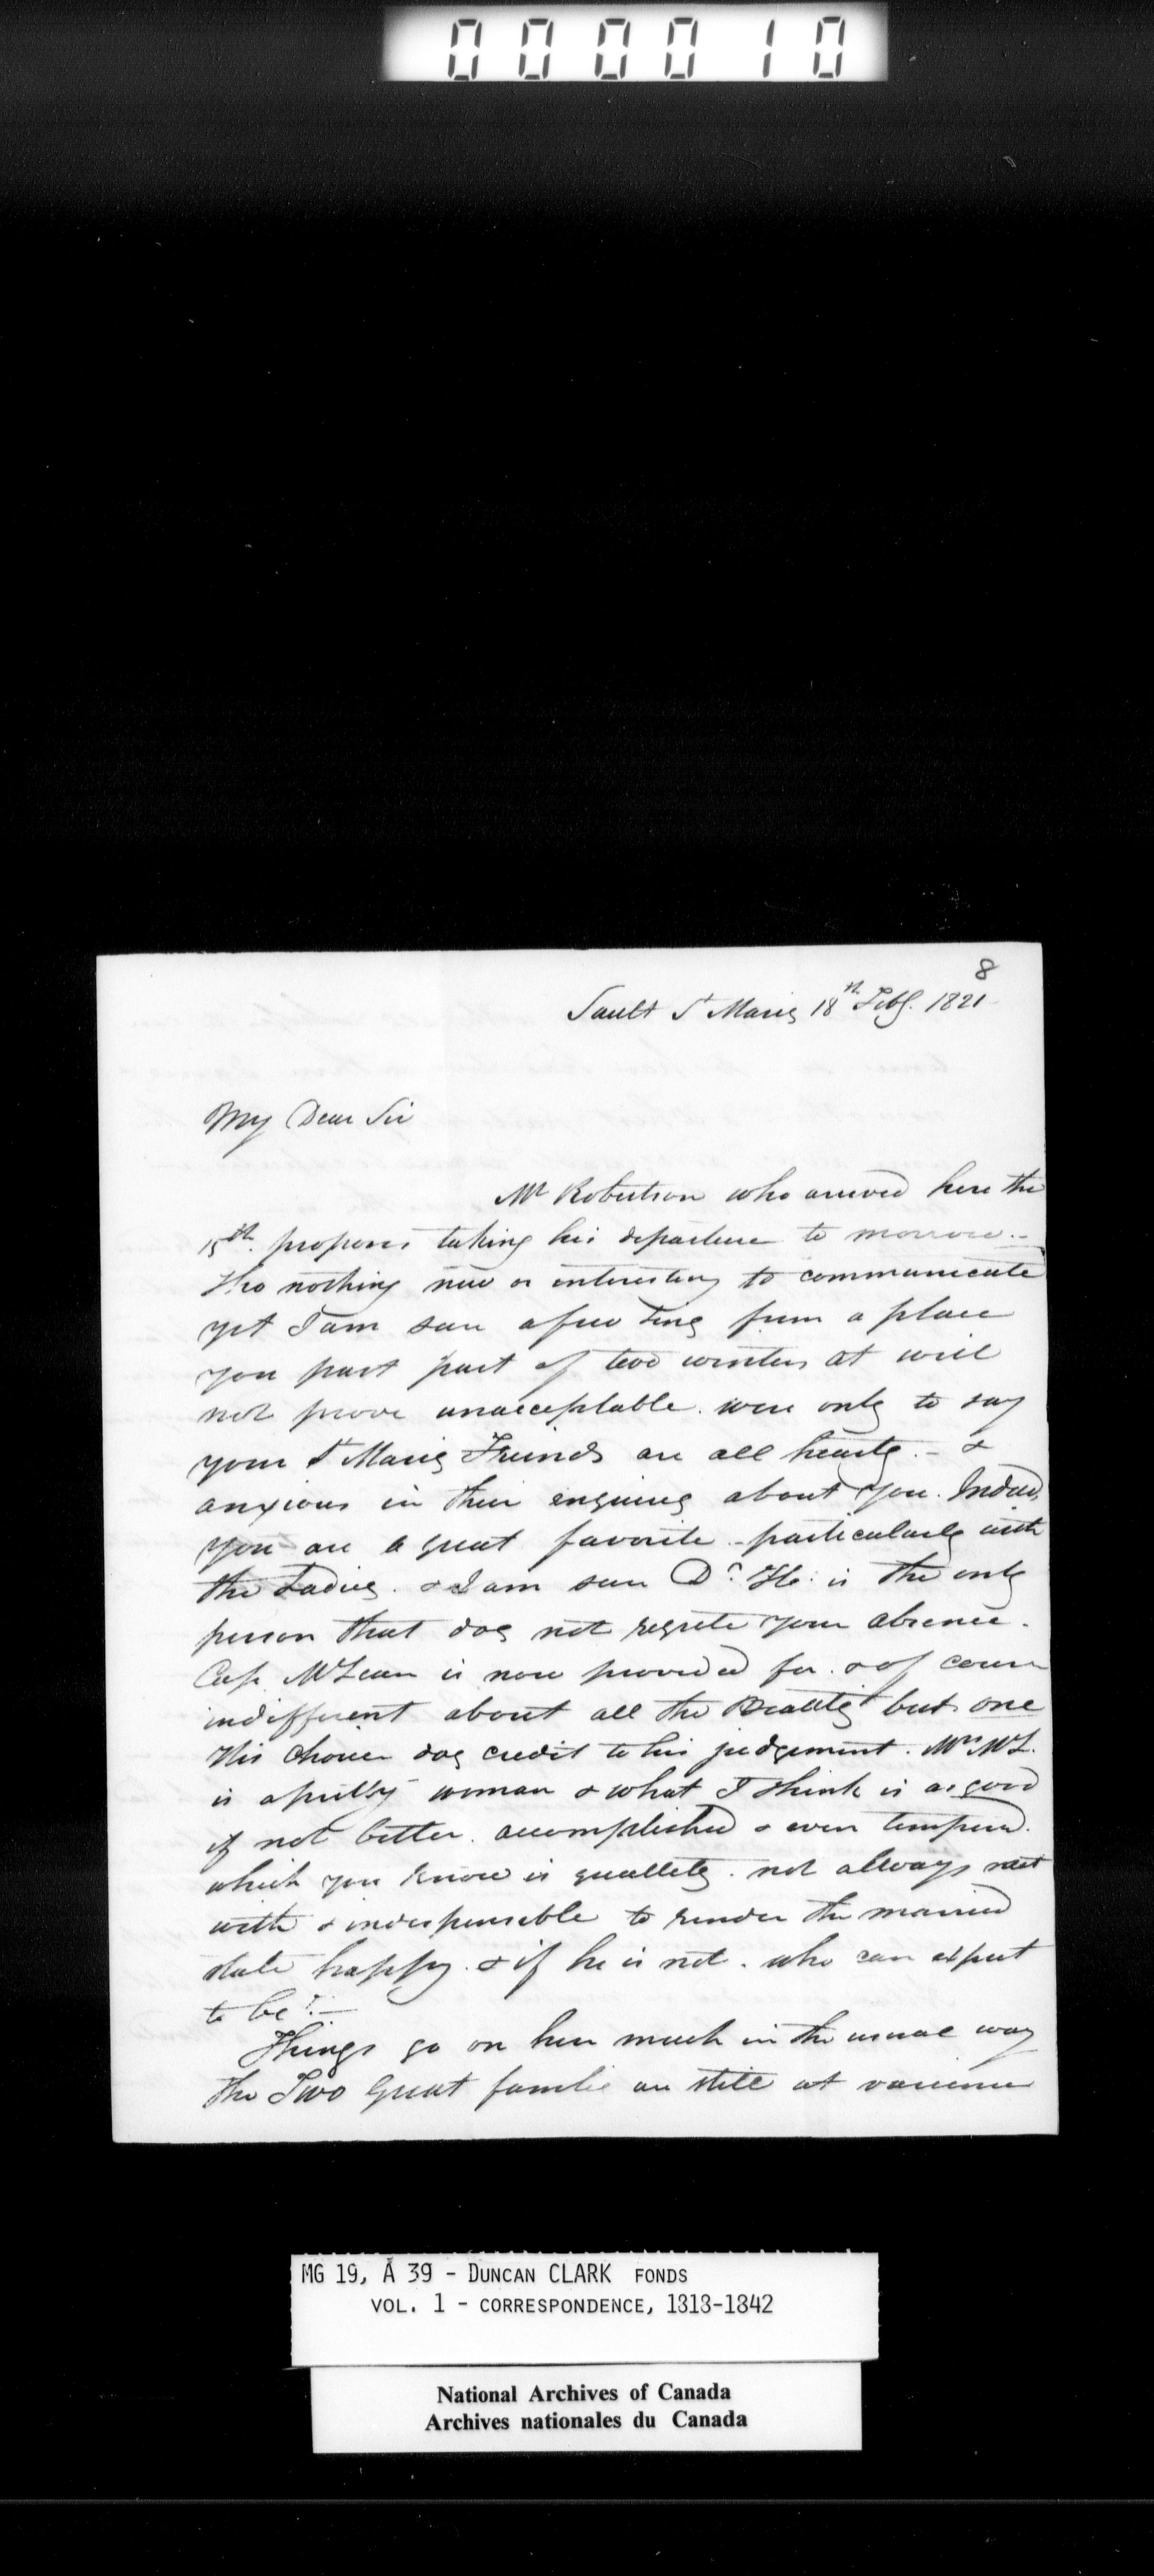 000010
8
Sault St Maries 18th Feby. 1821
My Dear Sir
Mr Robertson who arrived here the
15th. proposes taking his departure to morrow.-
Tho nothing new or interesting to communicate
yet I am sure a few lines from a place
you past part of two winters at will
not prove unacceptable. were only to say
your St Maries Friends are all hearty. - &
anxious in their enquiries about you. Indeed,
you are a great favorite - particularly with
the Ladies. & I am sure Dr. is the only
person that does not regrete your absence.
Cap. McLean is now provided for. & of course
indifferent about all the Beauties but one
His choice does credit to his judgement. Mrs McL.
is a pretty woman & what I think is as good
if not better. accomplished & even tempered.
which you know is quallity. not allways met
with & indispensible to render the married
state happy. & if he is not. who can expect
to be? -
Things go on here much in the usual way
the Two Great familie are still at varience
MG 19, A 39 - DUNCAN CLARK FONDS
VOL. 1 - CORRESPONDENCE, 1813-1842
National Archives of Canada
Archives nationales du Canada